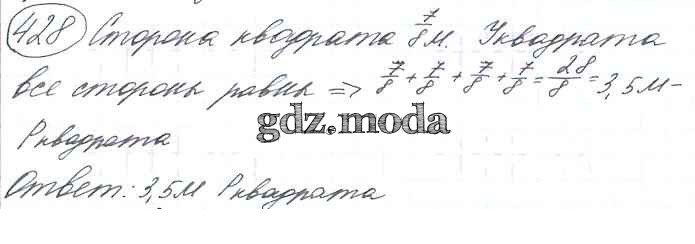 428 Сторона квадрата 7/8 м. У квадрата
все стороны равны => 7/8 + 7/8 + 7/8 + 7/8 = 28/8 = 3,5 м -
gdz.moda
P квадрата
Ответ: 3,5 м P квадрата